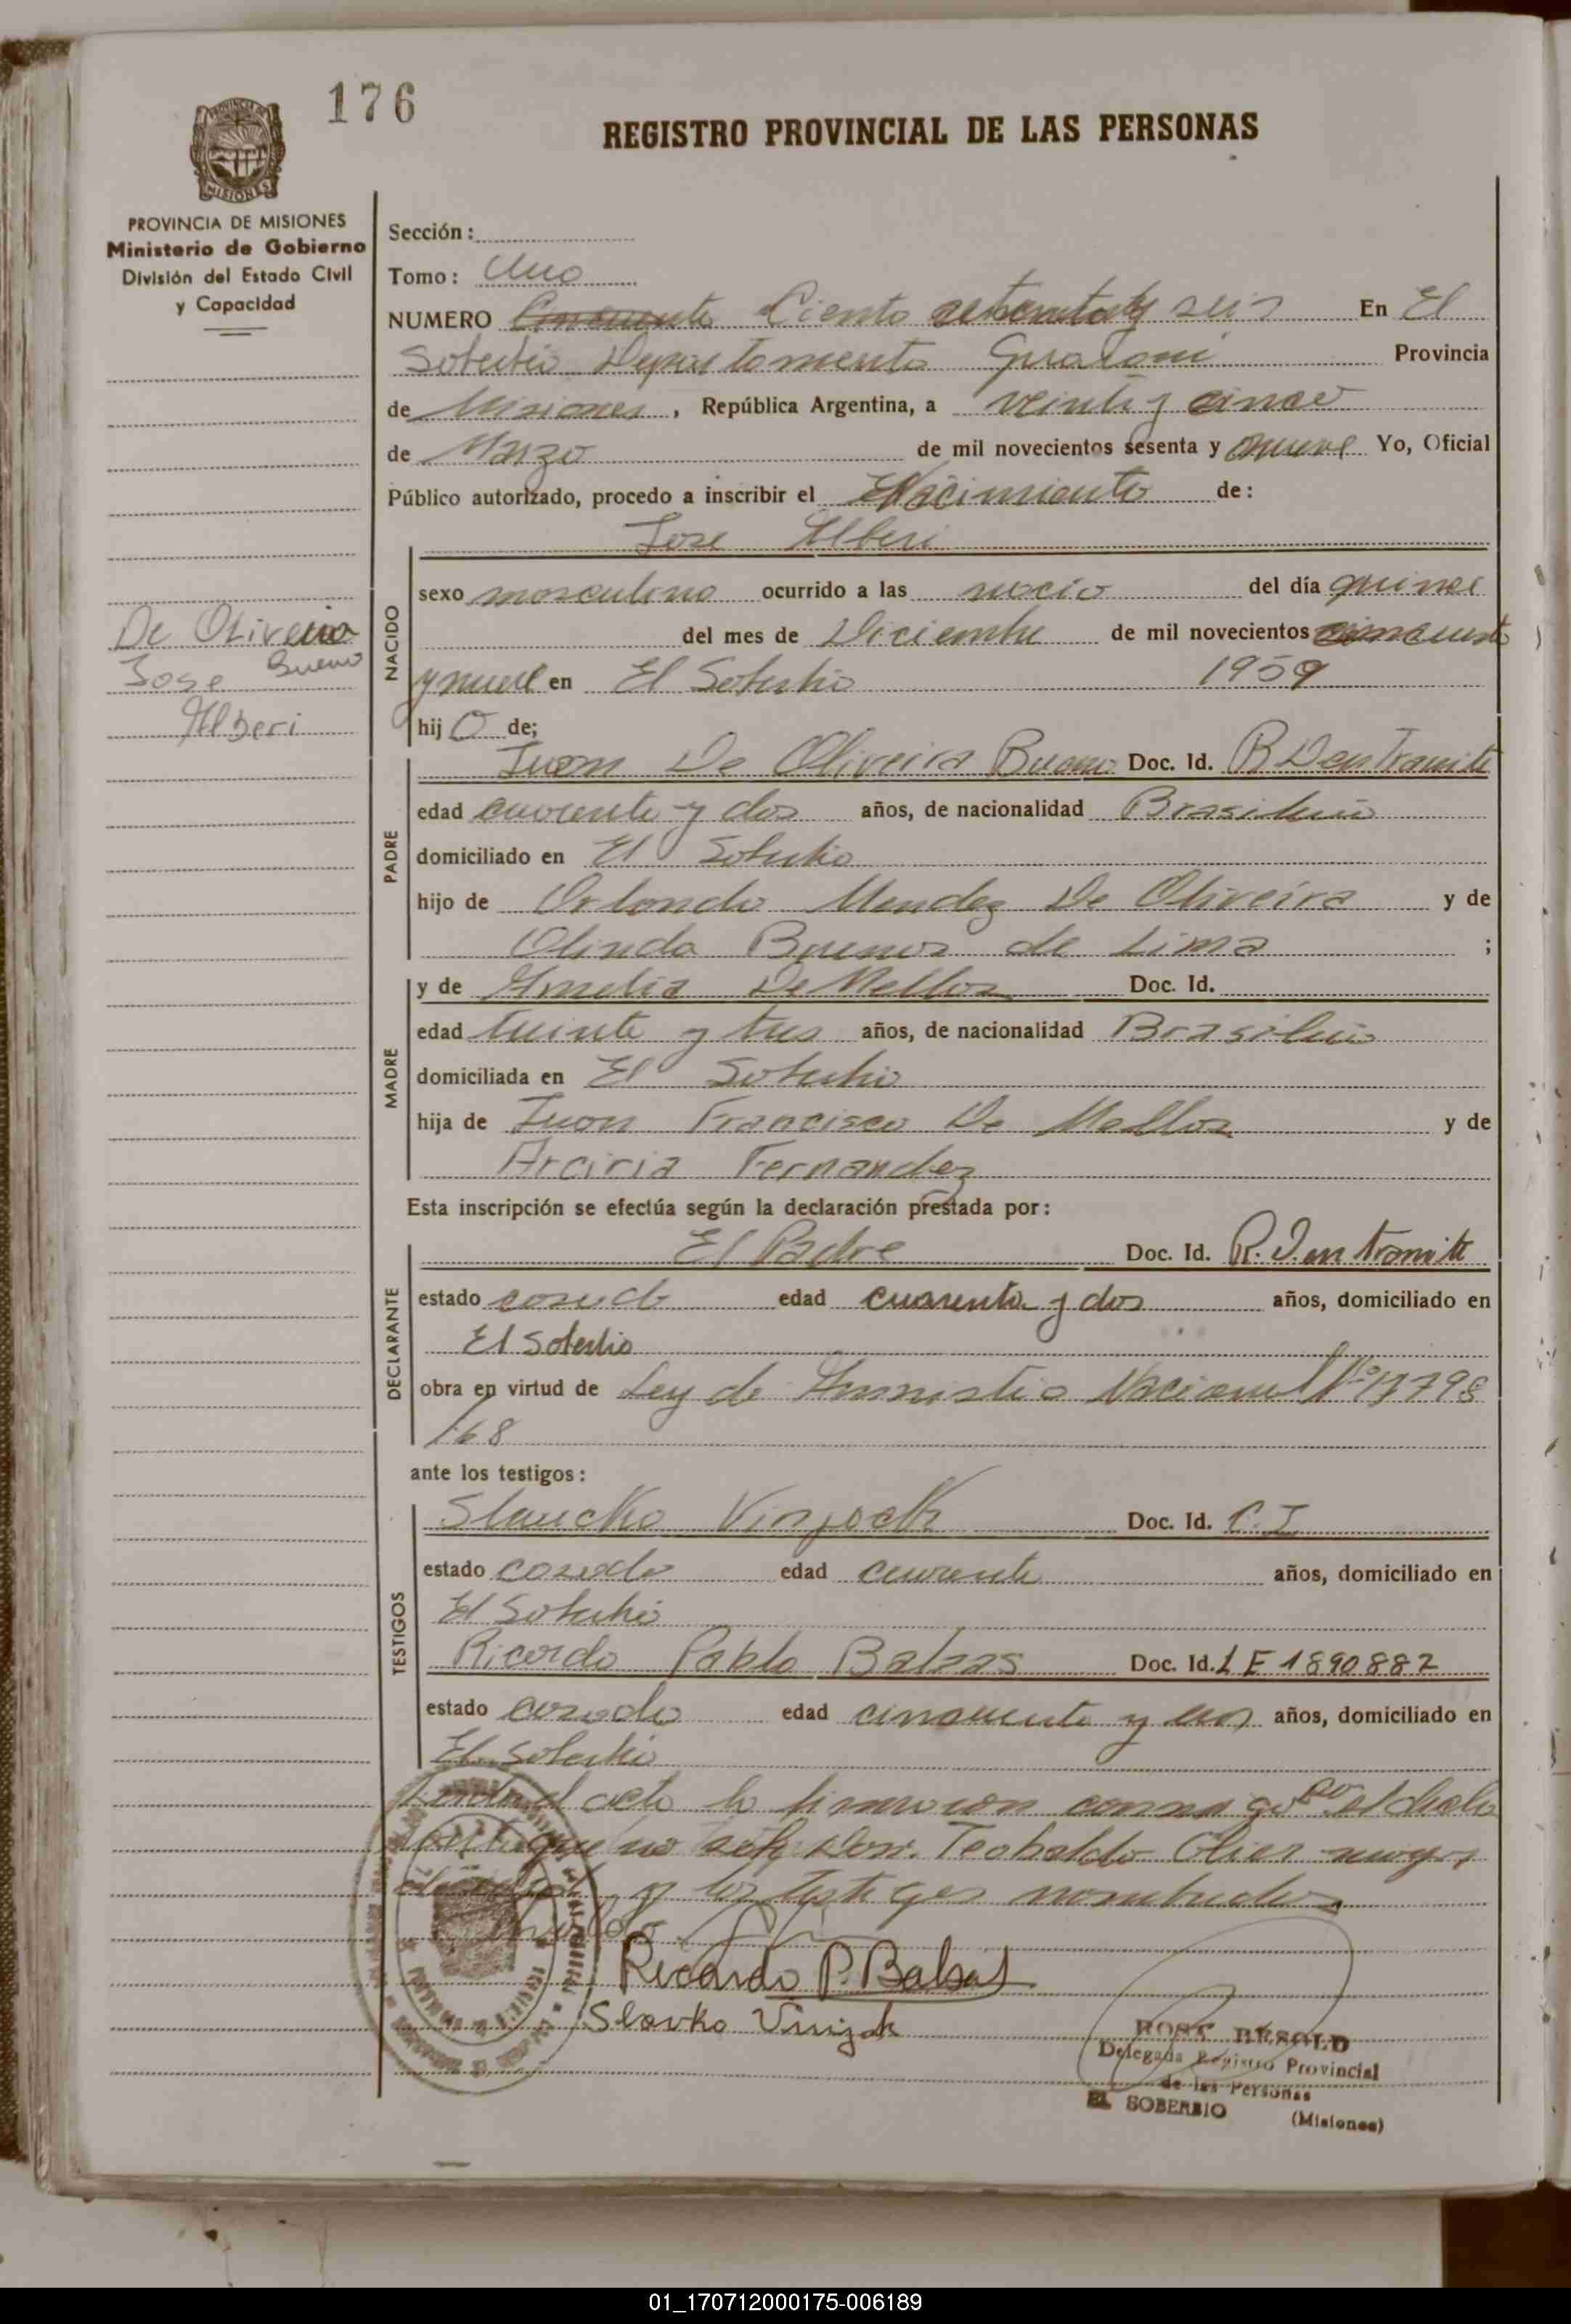 176
REGISTRO PROVINCIAL DE LAS PERSONAS
PROVINCIA DE MISIONES
Ministerio de Gobierno
División del Estado Civil
y Capacidad
Sección:
Tomo: Uno
NUMERO Cincuenta Ciento setenta y seis En El
Soberbio Departamento Guarani Provincia
de Misiones, República Argentina, a veinte y cinco
de Marzo de mil novecientos sesenta y nueve Yo, Oficial
Público autorizado, procedo a inscribir el Nacimiento de:
Jose Alberi
De Oliveira
Bueno
Jose
Alberi
NACIDO
sexo masculino ocurrido a las nacio del día quince
del mes de Diciembre de mil novecientos cincuenta
y nueve en El Soberbio 1959
hijo de;
PADRE
Juan De Oliveira Bueno Doc. Id. R D en Tramite
edad cuarenta y dos años, de nacionalidad Brasileño
domiciliado en El Soberbio
hijo de Orlando Mendez De Oliveira y de
Olinda Buenos de Lima ;
MADRE
y de Amelia De Mellos Doc. Id.
edad treinta y tres años, de nacionalidad Brasileño
domiciliada en El Soberbio
hija de Juan Francisco De Mellos y de
Arciria Fernandez
Esta inscripción se efectúa según la declaración prestada por:
DECLARANTE
El Padre Doc. Id. R. D. en tramite
estado casado edad cuarenta y dos años, domiciliado en
El Soberbio
obra en virtud de Ley de Amnistia Nacional Nº 17798
/68
ante los testigos:
TESTIGOS
Slaucko Vinjock Doc. Id. C.I
estado casado edad cuarenta años, domiciliado en
El Soberbio
Ricardo Pablo Balsas Doc. Id. L E 1890882
estado casado edad cincuenta y un años, domiciliado en
El Soberbio
acto lo firmaron conmigo el
que no Don. Teobaldo Olier mayor
y los testigos nombrados
Ricardo P. Balsas
Slavko Vinjok
ROSE BESOLD
Delegada Registro Provincial
de las Personas
EL SOBERBIO (Misiones)
01_170712000175-006189